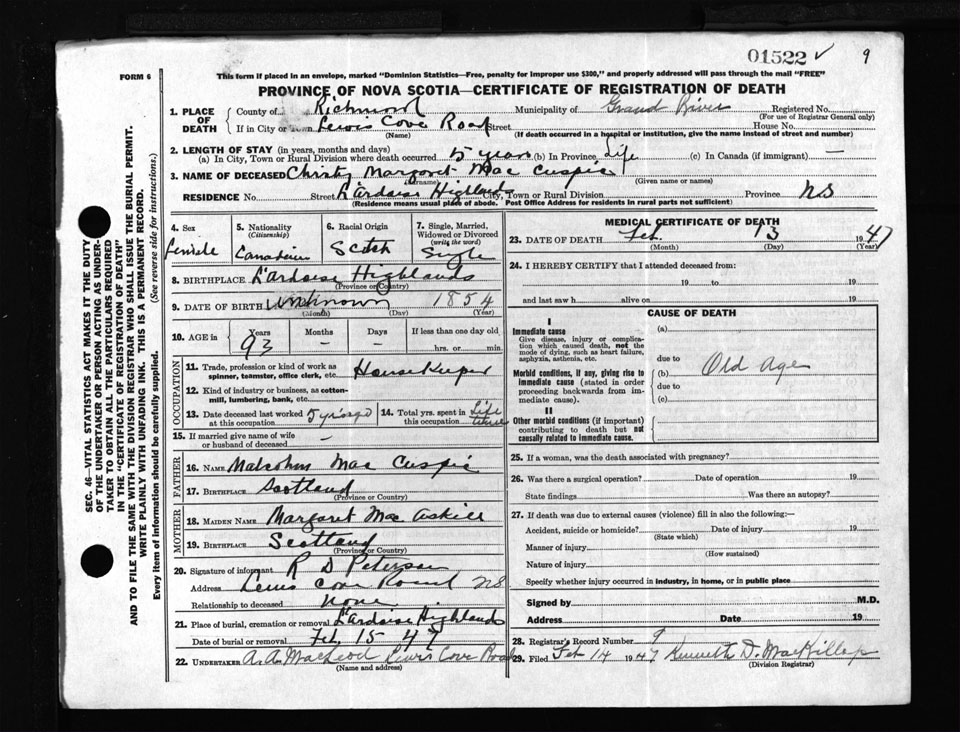 01522 ✓ 9
FORM 6
This form if placed in an envelope, marked "Dominion Statistics—Free, penalty for improper use $300," and properly addressed will pass through the mail "FREE"
PROVINCE OF NOVA SCOTIA—CERTIFICATE OF REGISTRATION OF DEATH
1. PLACE OF DEATH
County of Richmond Municipality of Grand River Registered No.
(For use of Registrar General only)
If in City or Town Lewis Cove Road Street House No.
(Name) (If death occurred in a hospital or institution, give the name instead of street and number)
2. LENGTH OF STAY (in years, months and days)
(a) In City, Town or Rural Division where death occurred 5 years (b) In Province Life (c) In Canada (if immigrant) —
3. NAME OF DECEASED Christy Margaret Mac Cuspic
(Surname) (Given name or names)
RESIDENCE No. Street L'Ardoise Highlands City, Town or Rural Division Province NS
(Residence means usual place of abode. Post Office Address for residents in rural parts not sufficient)
4. Sex
Female
5. Nationality
(Citizenship)
Canadian
6. Racial Origin
Scotch
7. Single, Married, Widowed or Divorced
(write the word)
Single
8. BIRTHPLACE L'Ardoise Highlands
(Province or Country)
9. DATE OF BIRTH Unknown 1854
(Month) (Day) (Year)
10. AGE in
Years Months Days If less than one day old
93 – – hrs. or min.
OCCUPATION
11. Trade, profession or kind of work as spinner, teamster, office clerk, etc. House Keeper
12. Kind of industry or business, as cotton-mill, lumbering, bank, etc.
13. Date deceased last worked at this occupation 5 yrs ago
14. Total yrs. spent in this occupation Life time
15. If married give name of wife or husband of deceased –
FATHER
16. NAME Malcolm Mac Cuspic
17. BIRTHPLACE Scotland
(Province or Country)
MOTHER
18. MAIDEN NAME Margaret Mac Askill
19. BIRTHPLACE Scotland
(Province or Country)
20. Signature of informant R D Peterson
Address Lewis Cove Road NS
Relationship to deceased none
21. Place of burial, cremation or removal L'Ardoise Highlands
Date of burial or removal Feb 15 47
22. UNDERTAKER A. A. MacLeod Lewis Cove Road
(Name and address)
MEDICAL CERTIFICATE OF DEATH
23. DATE OF DEATH Feb. 13 1947
(Month) (Day) (Year)
24. I HEREBY CERTIFY that I attended deceased from:
19 to 19
and last saw h alive on 19
CAUSE OF DEATH
I
Immediate cause
Give disease, injury or complication which caused death, not the mode of dying, such as heart failure, asphyxia, asthenia, etc.
(a)
due to
Morbid conditions, if any, giving rise to immediate cause (stated in order proceeding backwards from immediate cause).
(b) Old Age
due to
(c)
II
Other morbid conditions (if important) contributing to death but not causally related to immediate cause.
25. If a woman, was the death associated with pregnancy?
26. Was there a surgical operation? Date of operation 19
State findings Was there an autopsy?
27. If death was due to external causes (violence) fill in also the following:—
Accident, suicide or homicide? Date of injury 19
(State which)
Manner of injury
(How sustained)
Nature of injury
Specify whether injury occurred in industry, in home, or in public place
Signed by M.D.
Address Date 19
28. Registrar's Record Number 9
29. Filed Feb 14 1947 Kenneth D. MacKillop
(Division Registrar)
SEC. 46—VITAL STATISTICS ACT MAKES IT THE DUTY
OF THE UNDERTAKER OR PERSON ACTING AS UNDER-
TAKER TO OBTAIN ALL THE PARTICULARS REQUIRED
IN THE "CERTIFICATE OF REGISTRATION OF DEATH"
AND TO FILE THE SAME WITH THE DIVISION REGISTRAR WHO SHALL ISSUE THE BURIAL PERMIT.
WRITE PLAINLY WITH UNFADING INK. THIS IS A PERMANENT RECORD.
Every item of information should be carefully supplied. (See reverse side for instructions.)